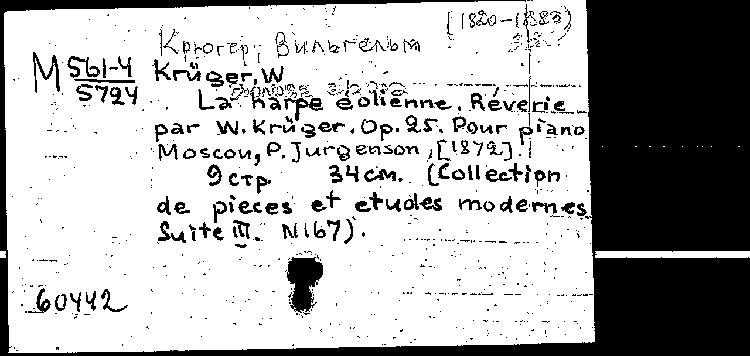 [1820-1883)
Крюгер, Вильгельм
М 561-4
5724
Krüger, W
La harpe eolienne. Réverie
par W. Krüger. Op. 25. Pour piano
Moscou, P. Jurgenson, [1872]
9 стр 34 см. (Collection
de pieces et etudes modernes
Suite III. N167).
60442